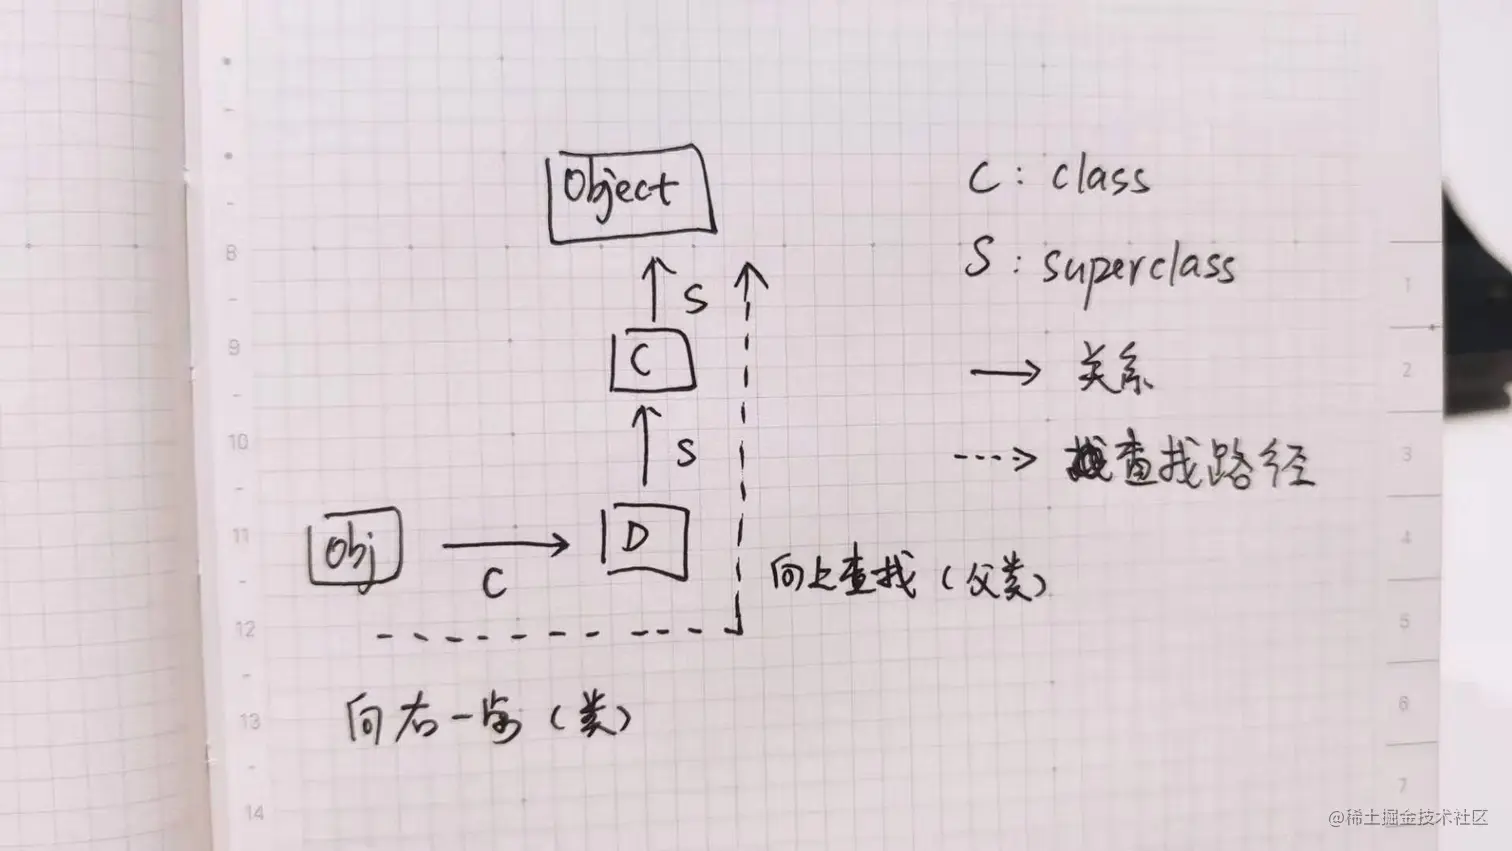 Object
C : class
S : superclass
S
C
关系
S
查找路径
Obj
C
D
向上查找 (父类)
向右一步 (类)
8
9
10
11
12
13
14
1
2
3
4
5
6
7
@稀土掘金技术社区